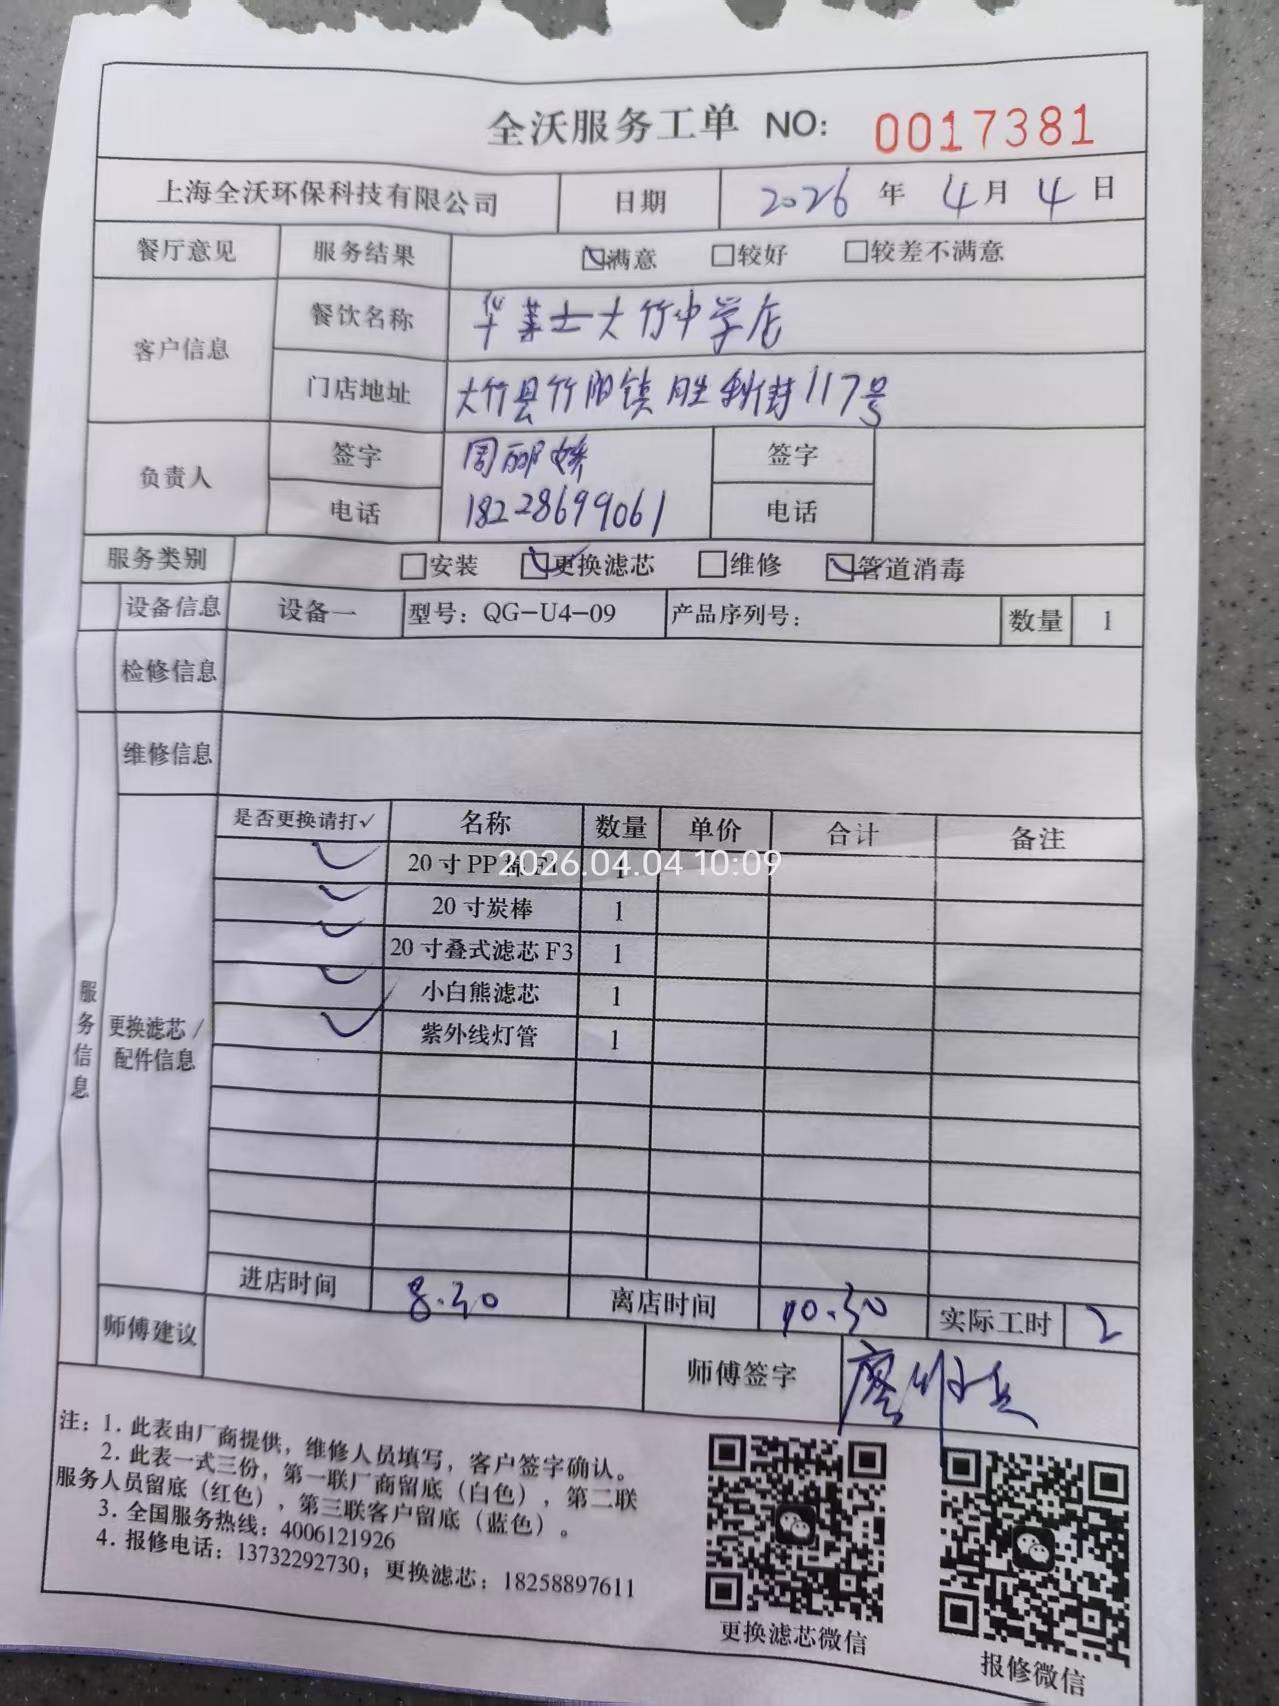 全沃服务工单 NO: 0017381
上海全沃环保科技有限公司 日期 2026 年 4 月 4 日
餐厅意见 服务结果 ☑满意 □较好 □较差不满意
客户信息 餐饮名称 华莱士大竹中学店
门店地址 大竹县竹阳镇胜利街117号
负责人 签字 周丽 签字
电话 18228699061 电话
服务类别 □安装 ☑更换滤芯 □维修 ☑管道消毒
设备信息 设备一 型号：QG-U4-09 产品序列号： 数量 1
检修信息
维修信息
服务信息
更换滤芯/配件信息
是否更换请打✓ 名称 数量 单价 合计 备注
✓ 20寸PP棉F1 1
2026.04.04 10:09
✓ 20寸炭棒 1
✓ 20寸叠式滤芯F3 1
✓ 小白熊滤芯 1
✓ 紫外线灯管 1
进店时间 8.30 离店时间 10.30 实际工时 2
师傅建议 师傅签字 廖
注：1. 此表由厂商提供，维修人员填写，客户签字确认。
2. 此表一式三份，第一联厂商留底（白色），第二联
服务人员留底（红色），第三联客户留底（蓝色）。
3. 全国服务热线：4006121926
4. 报修电话：13732292730；更换滤芯：18258897611
更换滤芯微信
报修微信